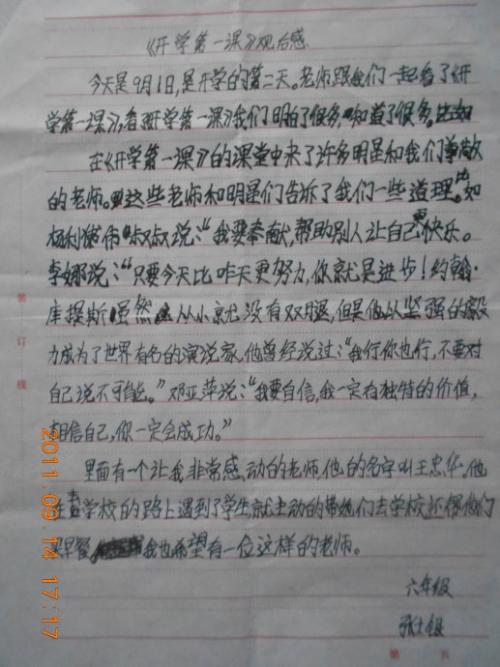 《开学第一课》观后感
今天是9月1日,是开学的第二天。老师跟我们一起看了《开
学第一课》,看《开学第一课》我们明白了很多,知道了很多。比如
在《开学第一课》的课堂中来了许多明星和我们敬
的老师。这些老师和明星们告诉了我们一些道理。如
杨利伟叔叔说:“我要奉献,帮助别人让自己快乐。
李娜说:“只要今天比昨天更努力,你就是进步!约翰·
库提斯虽然从小就没有双腿,但是他以坚强的毅
力成为了世界有名的演说家,他曾经说过:“我行你也行,不要对
自己说不可能。”邓亚萍说:“我要自信,我一定有独特的价值,
相信自己,你一定会成功。”
里面有一个让我非常感动的老师,他的名字叫王忠华,他
在去学校的路上遇到了学生就主动的带她们去学校,还得给他们
买早餐,我也希望有一位这样的老师。
六年级
张
装订线
2011.09.14 17:17
第 页